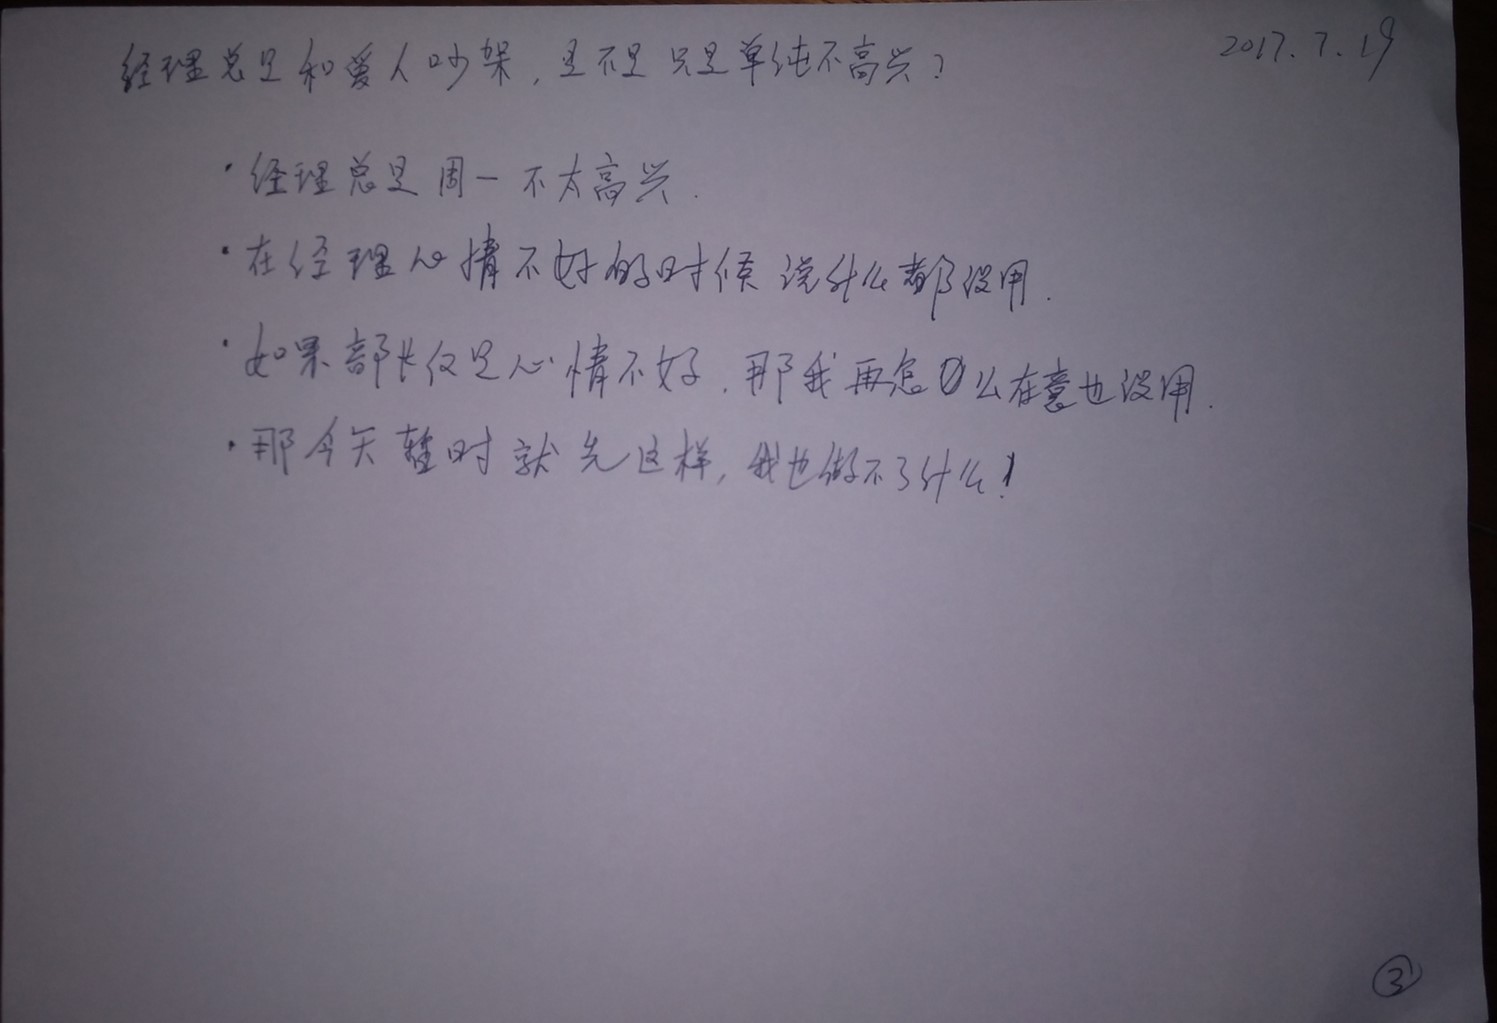 经理总是和爱人吵架,是不是只是单纯不高兴? 2017.7.19
·经理总是周一不太高兴.
·在经理心情不好的时候说什么都没用.
·如果部长仅是心情不好.那我再怎么在意也没用.
·那今天暂时就先这样,我也做不了什么!
③